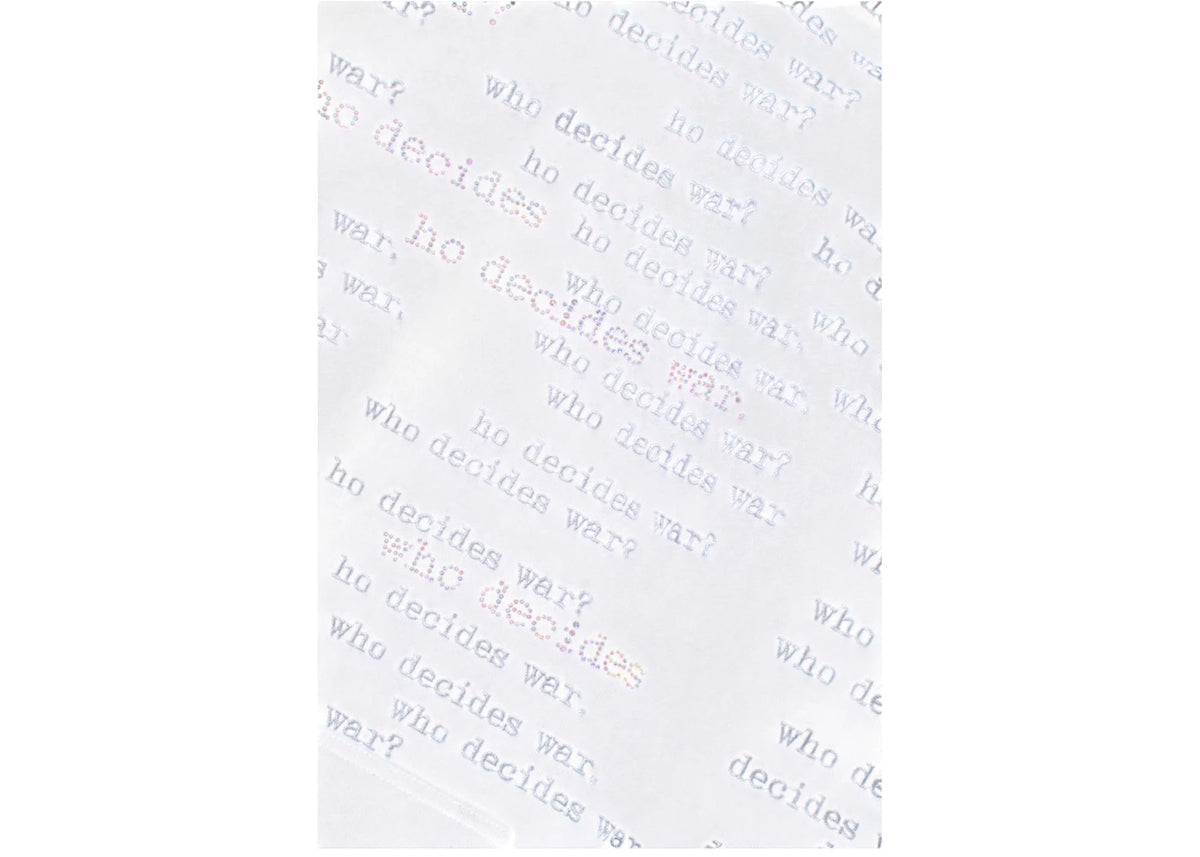 war?
decides war?
decides war?
ho decides war?
war?
who decides war?
ho decides wa
ho decides
ho decides war?
ho decides war,
ho d
war,
ho decides war.
who decides war,
who
s war,
who decides war?
who
ar
who decides war
who decides war?
ho decides war?
h
ho decides war?
who decides
wh
ho decides war,
who
who decides war,
who de
war?
who decides war
who de
decides w